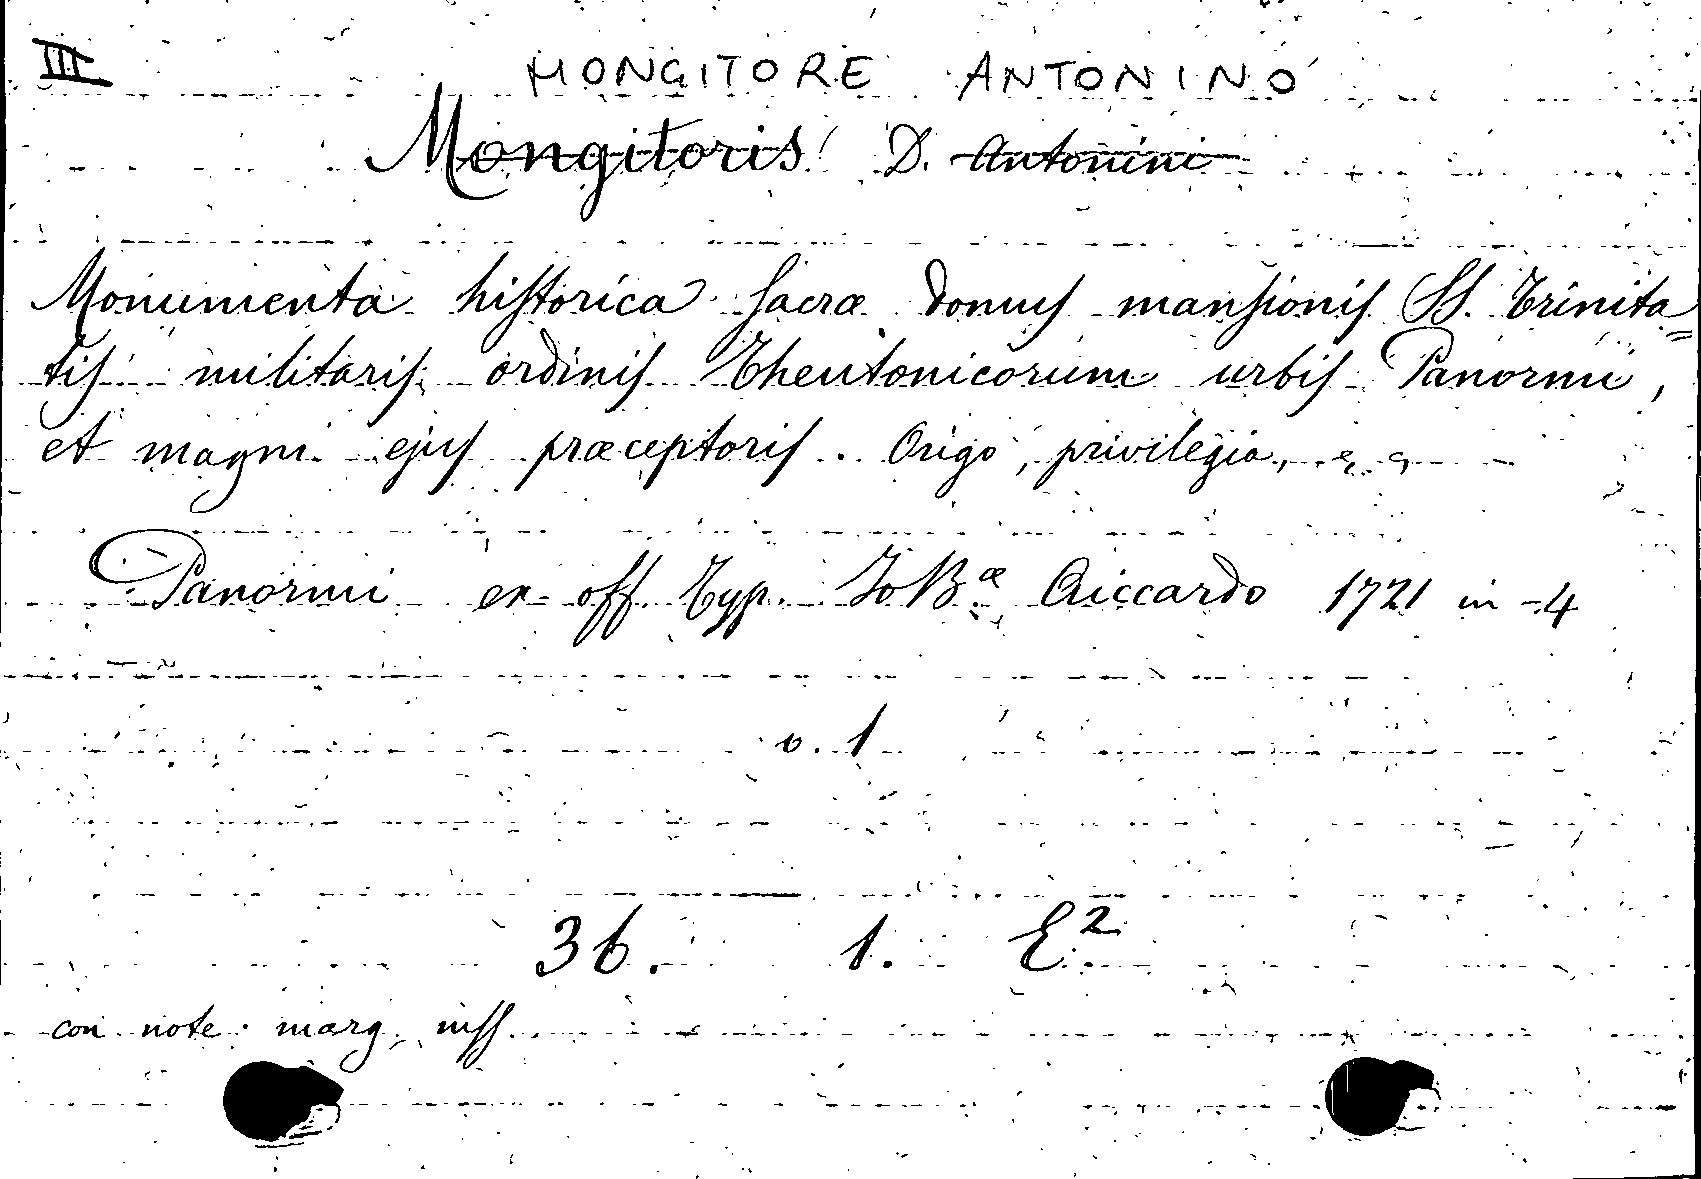 III
MONGITORE ANTONINO
Mongitoris D. Antonini
Monumenta historica sacræ domus mansionis SS. Trinita=
tis militaris ordinis Theutonicorum urbis Panormi,
et magni ejus præceptoris. Origo, privilegia, &c.
Panormi ex off. Typ. Jo Bæ Aiccardo 1721 in-4
v. 1
36. 1. E2.
con note marg. mss.